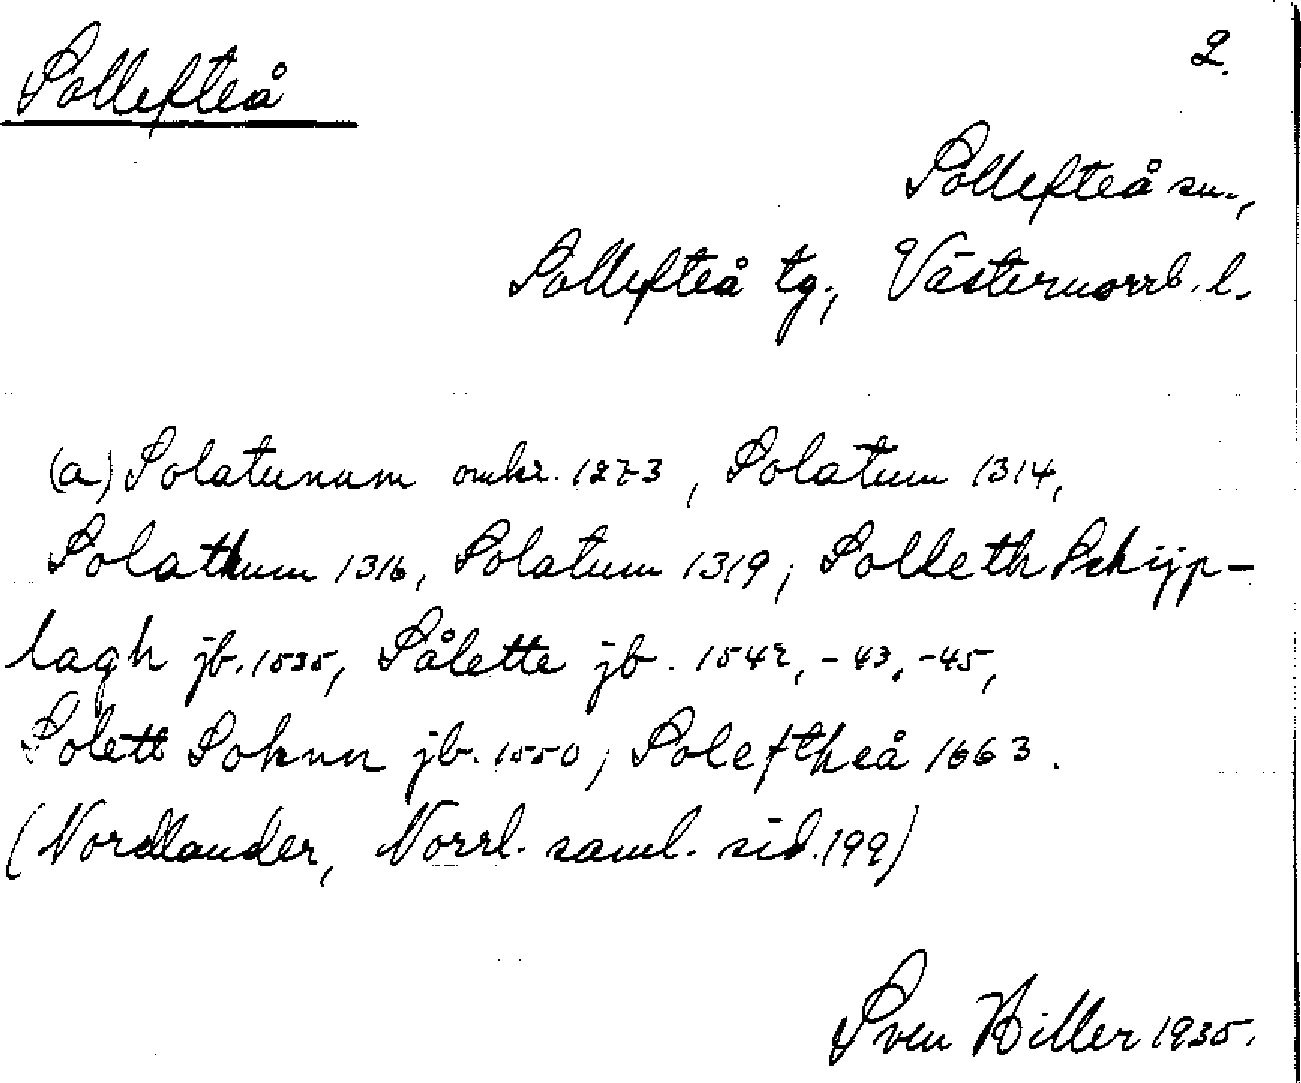 2.
Sollefteå
Sollefteå sn.,
Sollefteå tg., Västernorrl. l.
(a) Solatunum omkr. 1273, Solatum 1314,
Solathum 1316, Solatum 1319; Solleth Schijp-
lagh jb. 1535, Sålette jb. 1542, -43, -45,
Solett Soknn jb. 1550; Soleftheå 1663.
(Nordlander, Norrl. saml. sid. 199)
Sven Hiller 1935.